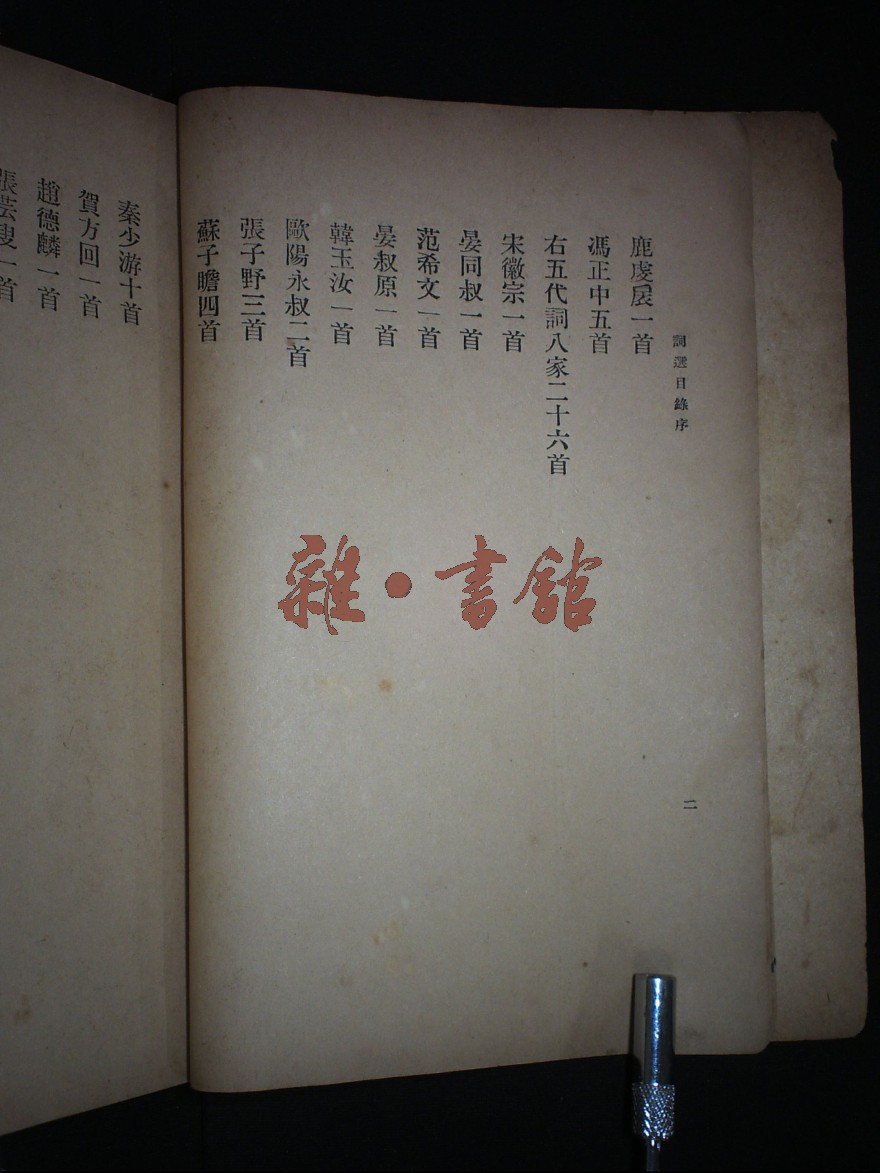 詞選目錄序
鹿虔扆一首
馮正中五首
右五代詞八家二十六首
宋徽宗一首
晏同叔一首
范希文一首
晏叔原一首
韓玉汝一首
歐陽永叔二首
張子野三首
蘇子瞻四首
二
秦少游十首
賀方回一首
趙德麟一首
張芸叟一首
雜·書館